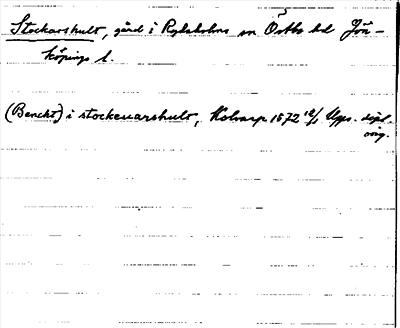 Stockarshult, gård i Rydaholms sn Östbo hd Jön-
köpings l.
(Benckt) i stockeuarshult, Kolvarp 1572 12/1 Upps. dipl.
orig.